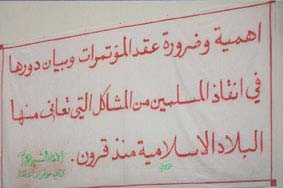 اهمية وضرورة عقد المؤتمرات وبيان دورها
في انقاذ المسلمين من المشاكل التي تعاني منها
البلاد الاسلامية منذ قرون.